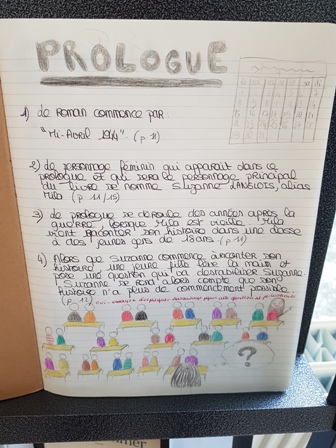 PROLOGUE
1) Le roman commence par :
"Mi-Avril 1944". (p 11)
2) Le personnage féminin qui apparaît dans le
prologue et qui sera le personnage principal
du livre se nomme Suzanne LANGLOIS, alias
Mila (p 11/15)
3) Le prologue se déroule des années après la
guerre, lorsque Mila est vieille. Mila
vient raconter son histoire dans une classe
à des jeunes gens de 18 ans. (p 11)
4) Alors que Suzanne commence à raconter son
histoire, une jeune fille lève la main et
pose une question qui va déstabiliser Suzanne.
Suzanne se rend alors compte que son
histoire n'a plus de commencement possible.
(p 12)
?